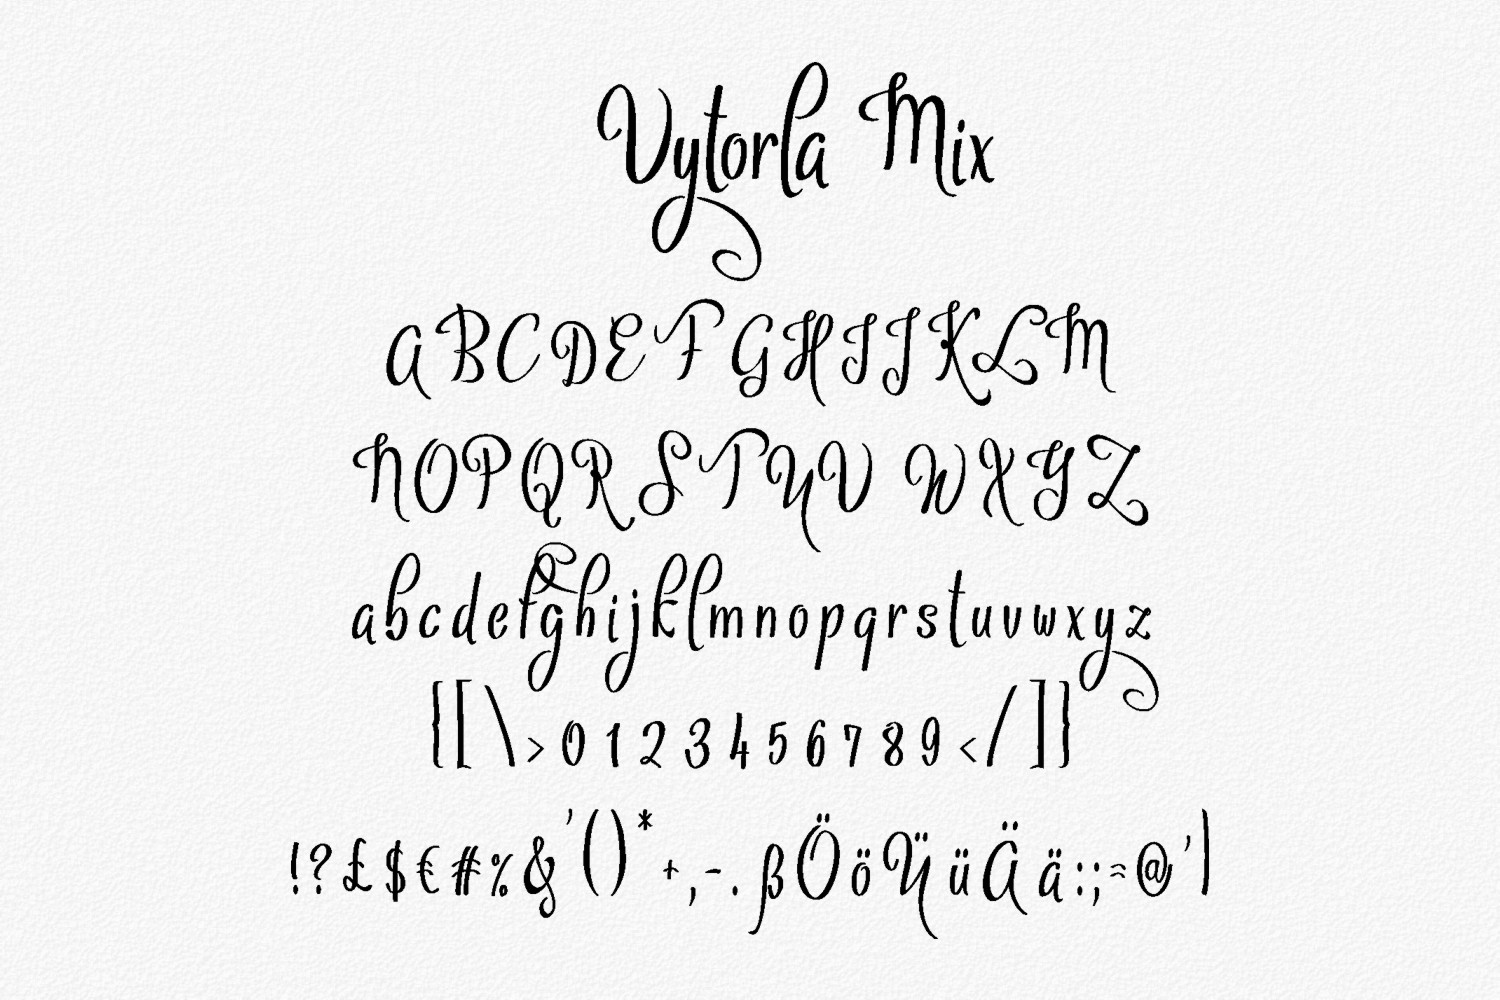 Vytorla Mix
ABCDEFGHIJKLM
NOPQRSTUV WXYZ
abcdefghijklmnopqrstuvwxyz
{[\>0123456789</]}
!?£$€#%&'()*+,-.ßÖöÜüÄä:;≈@'|